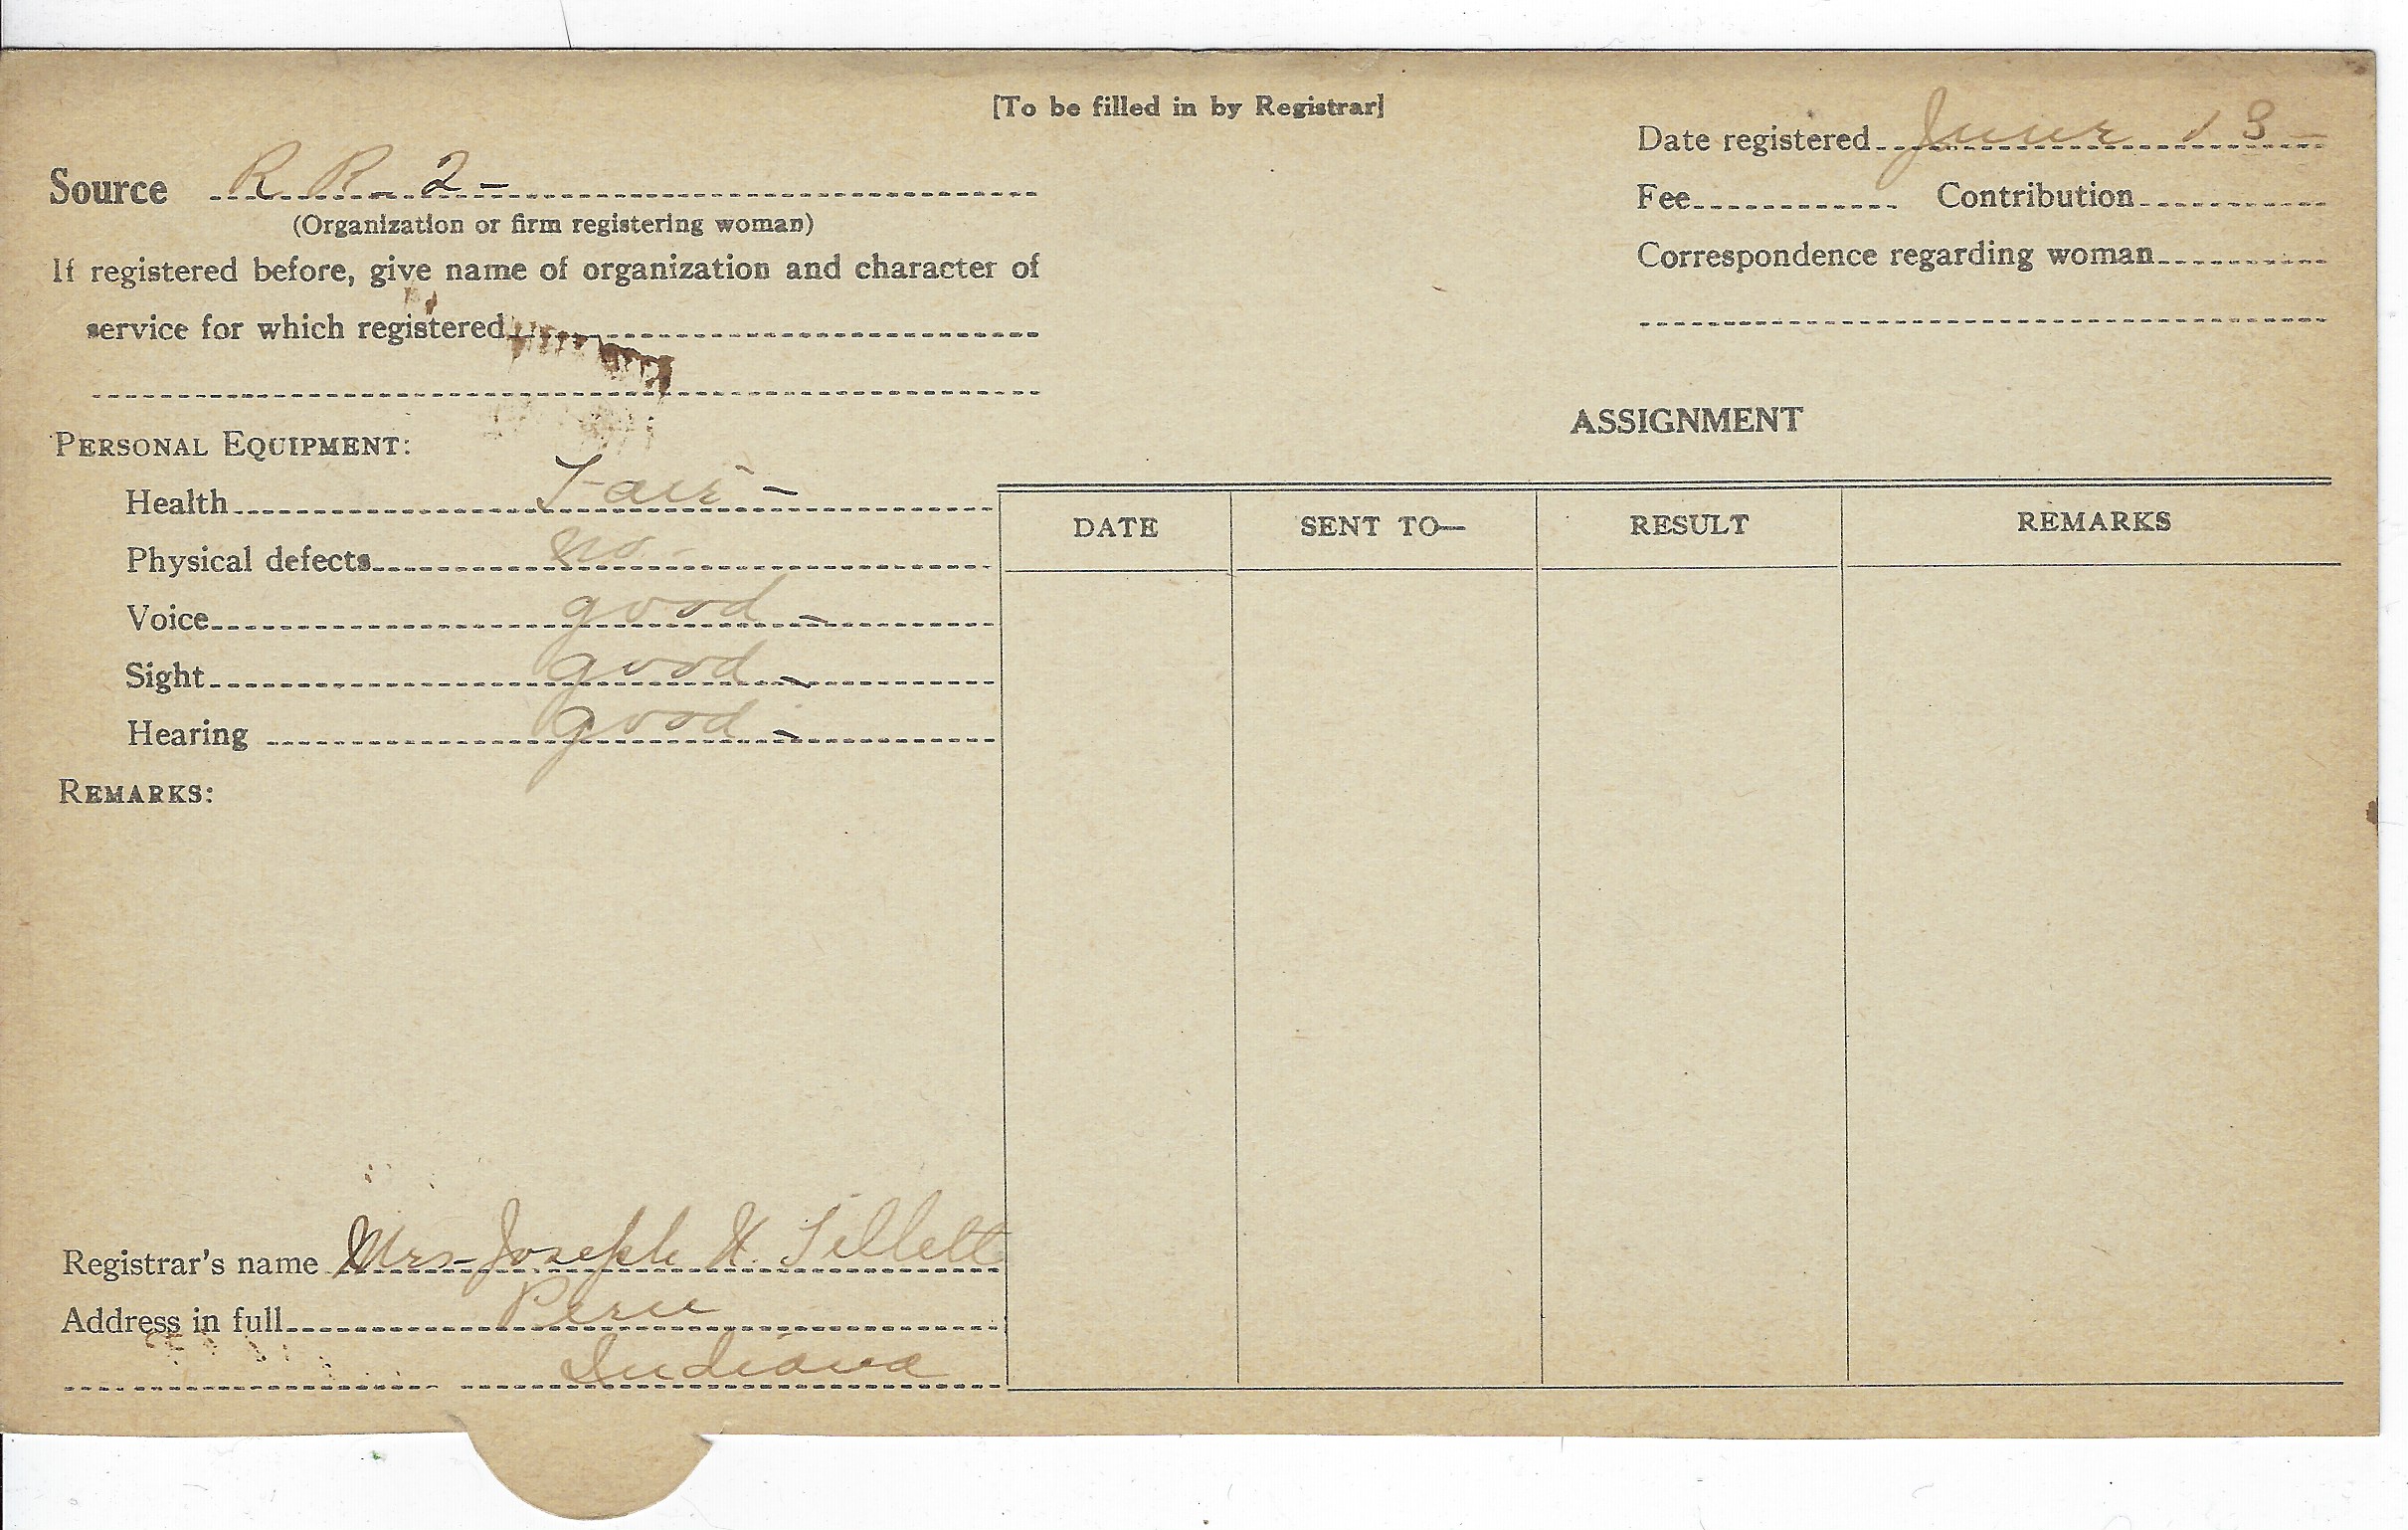 [To be filled in by Registrar]
Date registered June 13-
Source R R - 2 -
(Organization or firm registering woman)
Fee Contribution
If registered before, give name of organization and character of
service for which registered
Correspondence regarding woman
PERSONAL EQUIPMENT:
Health Fair -
Physical defects no -
Voice good -
Sight good -
Hearing good -
REMARKS:
Registrar's name Mrs-Joseph N. Tillett
Address in full Peru
Indiana
ASSIGNMENT
DATE SENT TO— RESULT REMARKS